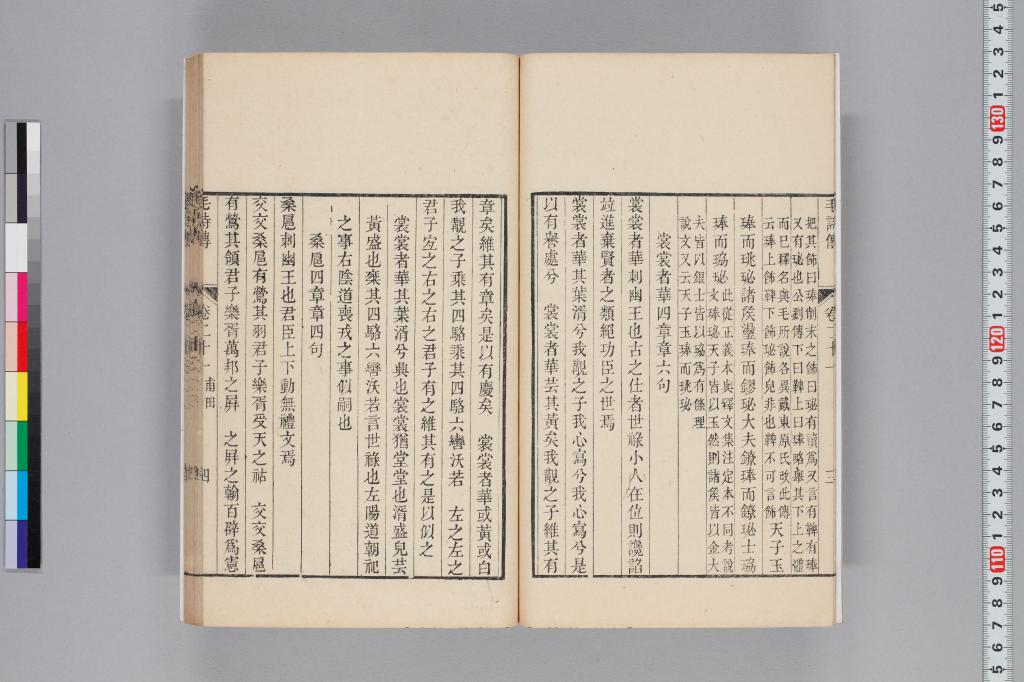 毛詩傳
把其飾曰琫削末之飾曰珌有讀爲又言有鞞有琫
又有珌也公劉傳下曰鞞上曰琫略舉其下上之體
而巳釋名與毛所說各異戴東原氏改此傳
云琫上飾鞞下飾珌飾皃非也鞞不可言飾
天子玉
琫而珧珌諸矦璗琫而璆珌大夫鐐琫而鏐珌士珕
琫而珕珌
此從正義本與釋文集注定本不同考說
文琫珌天子皆以玉然則諸矦皆以金大
夫皆以銀士皆以珕爲有條理
說文又云天子玉琫而珧珌
裳裳者華四章章六句
裳裳者華刺幽王也古之仕者世祿小人在位則讒諂
竝進棄賢者之類絕功臣之世焉
裳裳者華其葉湑兮我覯之子我心寫兮我心寫兮是
以有譽處兮 裳裳者華芸其黃矣我覯之子維其有
章矣維其有章矣是以有慶矣 裳裳者華或黃或白
我覯之子乘其四駱乘其四駱六轡沃若 左之左之
君子宐之右之右之君子有之維其有之是以似之
裳裳者華其葉湑兮興也裳裳猶堂堂也湑盛皃芸
黃盛也乘其四駱六轡沃若言世祿也左陽道朝祀
之事右陰道喪戎之事似嗣也
桑扈四章章四句
桑扈刺幽王也君臣上下動無禮文焉
交交桑扈有鶯其羽君子樂胥受天之祜 交交桑扈
有鶯其領君子樂胥萬邦之屛 之屛之翰百辟爲憲
毛詩傳 卷二十一 甫田 四